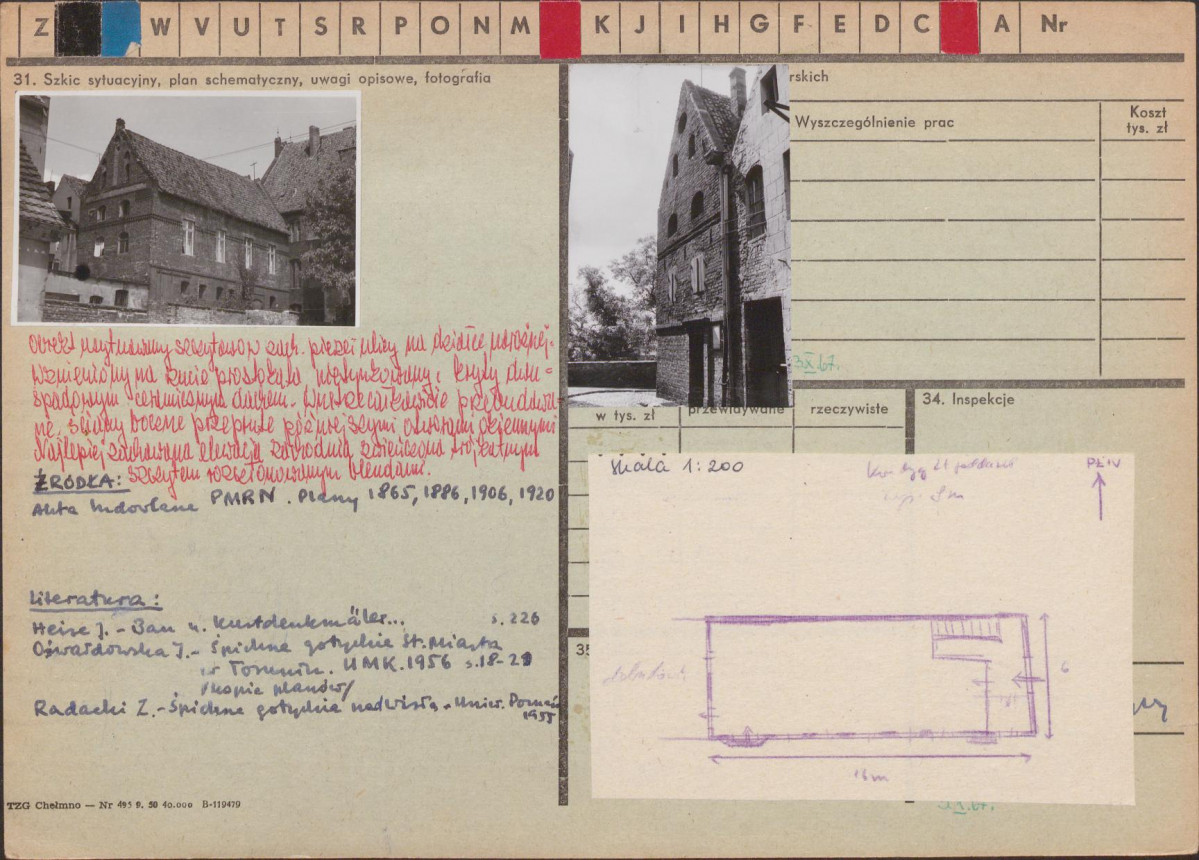 Z W V U T S R P O N M K J I H G F E D C A Nr
31. Szkic sytuacyjny, plan schematyczny, uwagi opisowe, fotografia
Obiekt usytuowany szczytowo w zach. pierzei ulicy na działce narożnej.
Wzniesiony na rzucie prostokąta, nieotynkowany, kryty dwu=
spadowym ceramicznym dachem. Wnętrze całkowicie przebudowa=
ne, ściany boczne przeprute późniejszymi otworami okiennymi
Najlepiej zachowana elewacja zachodnia zwieńczona trójkątnym
szczytem rozczłonkowanym blendami.
ŹRÓDŁA:
Akta budowlane PMRN. Plany 1865, 1886, 1906, 1920
Literatura:
Heise J. - Bau u. Kunstdenkmäler... s. 226
Oświałdowska J. - Śpichrze gotyckie St. Miasta
w Toruniu. UMK. 1956 s. 18-21
/kopie planów/
Radacki Z. - Śpichrze gotyckie nad Wisłą - Uniw. Poznań
1955
TZG Chełmno — Nr 495 9. 50 40.000 B-119479
rskich
Wyszczególnienie prac
Koszt
tys. zł
3 X 67.
w tys. zł
przewidywane
rzeczywiste
34. Inspekcje
35
Skala 1:200
PŁN
6
16m
X. 67.